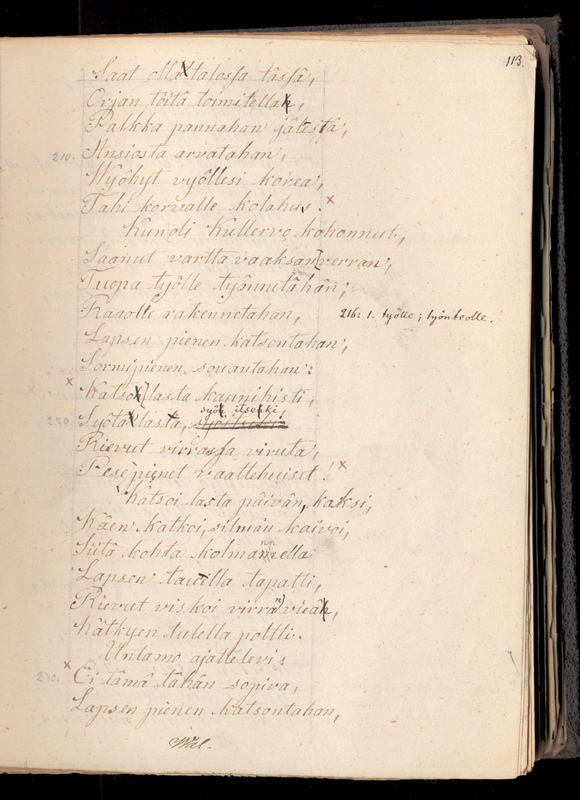 113.
Saat olla talossa tässä,
Orjan töitä toimitella,
Palkka pannahan jälestä,
210. Ansiosta arvatahan,
Wyöhyt vyöllesi korea,
Tahi korvalle kolahus.
Kun oli Kullervo kohonnut,
Saanut vartta vaaksan verran,
Tuopa työlle työnnetähän;
Raaolle rakennetahan,
216: 1. työlle; työnteolle.
Lapsen pienen katsontahan,
Sormipienen souantahan:
Katso lasta kaunihisti,
Syötä lasta, syö itseki,
Rievut virrassa viruta,
Pese pienet vaattehuiset!
Katsoi lasta päivän, kaksi,
Käen katkoi, silmän kaivoi,
Siitä kohta kolmannella
Lapsen tauilla tapatti,
Rievut viskoi virran vieä,
Kätkyen tulella poltti.
Untamo ajattelevi:
230. Ei tämä tähän sopiva,
Lapsen pienen katsontahan,